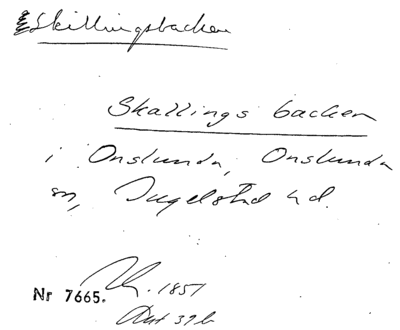 Skillingsbacken
Skallings backen
i Onslunda, Onslunda
sn, Ingelstad hd.
1851
Nr 7665.
Akt 37 b